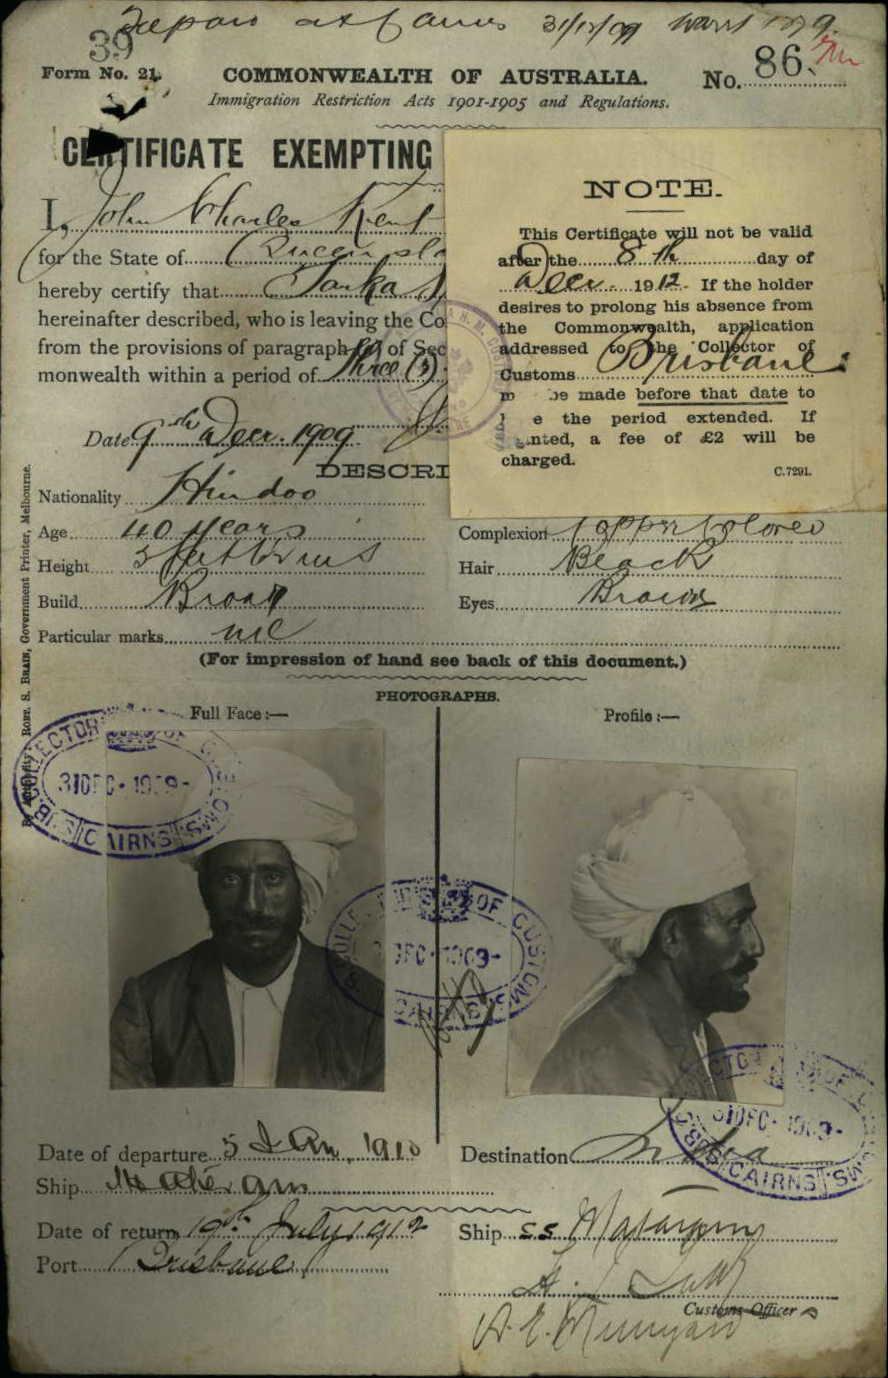 39 Depart at Cairns 31/12/09
Form No. 21.
COMMONWEALTH OF AUSTRALIA.
No. 86.
Immigration Restriction Acts 1901-1905 and Regulations.
CERTIFICATE EXEMPTING
I, John Charles Kent
for the State of
hereby certify that
hereinafter described, who is leaving the Co
from the provisions of paragraph of Sec
monwealth within a period of Three (3)
Date 9th Decr. 1909.
DESCRI
NOTE.
This Certificate will not be valid
after the 8th day of
Decr. 1912. If the holder
desires to prolong his absence from
the Commonwealth, application
addressed to the Collector of
Customs Brisbane
be made before that date to
e the period extended. If
anted, a fee of £2 will be
charged.
C.7291.
Nationality Hindoo
Age 40 years
Complexion Copper Colored
Height 5 feet ins
Hair Black
Build Broad
Eyes Brown
Particular marks nil
(For impression of hand see back of this document.)
PHOTOGRAPHS.
Full Face :—
Profile :—
By Authority: ROBT. S. BRAIN, Government Printer, Melbourne.
COLLECTOR OF CUSTOMS
31 DEC. 1909
CAIRNS
COLLECTOR OF CUSTOMS
DEC. 1909
CAIRNS
COLLECTOR OF CUSTOMS
31 DEC. 1909
CAIRNS
Date of departure 5 Jan. 1910
Destination India
Ship Mataram
Date of return 19th July 1912
Ship S.S. Mataram
Port Brisbane
Customs Officer